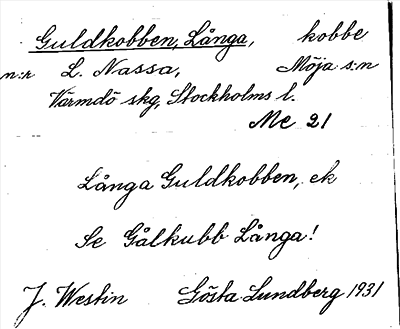 Guldkobben, Långa, kobbe
n:r L. Nassa, Möja s:n
Värmdö skg, Stockholms l.
Me 21
Långa Guldkobben, ek
Se Gålkubb Långa!
J. Westin Gösta Lundberg 1931